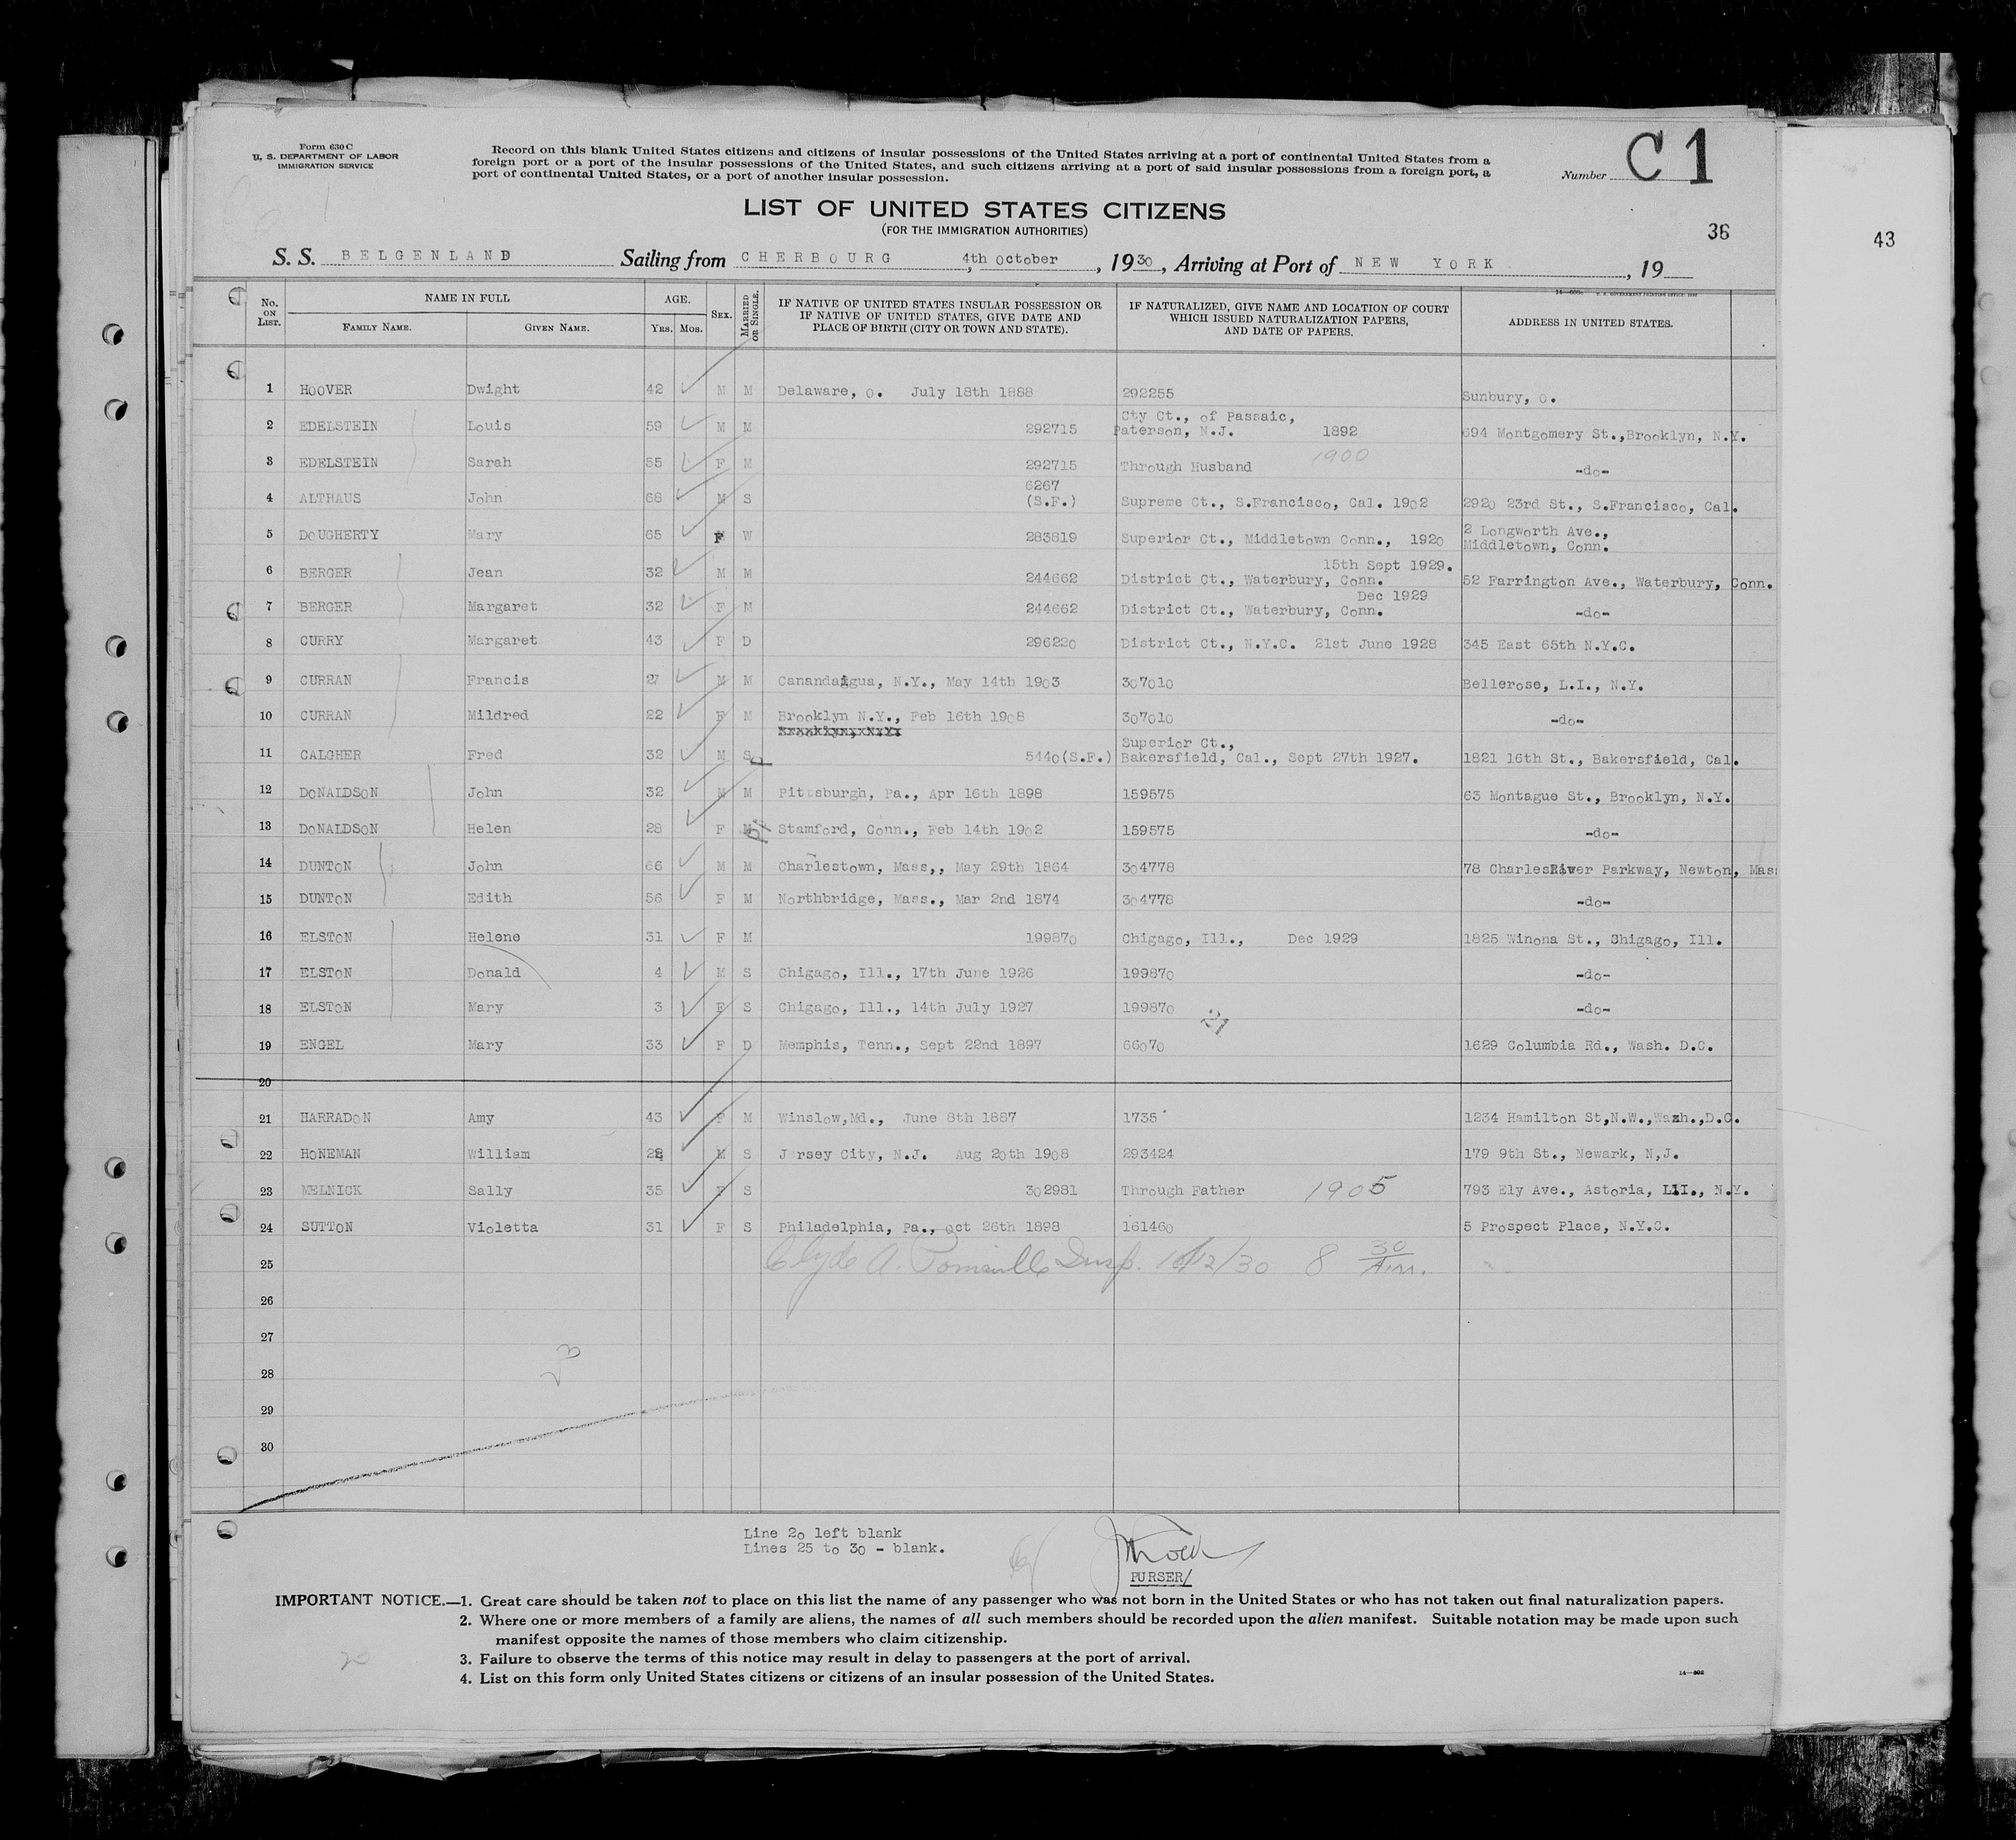 Form 630 C
U. S. DEPARTMENT OF LABOR
IMMIGRATION SERVICE
Record on this blank United States citizens and citizens of insular possessions of the United States arriving at a port of continental United States from a
foreign port or a port of the insular possessions of the United States, and such citizens arriving at a port of said insular possessions from a foreign port, a
port of continental United States, or a port of another insular possession.
Number C 1
LIST OF UNITED STATES CITIZENS
(FOR THE IMMIGRATION AUTHORITIES)
36
43
S. S. BELGENLAND Sailing from CHERBOURG, 4th October, 1930, Arriving at Port of NEW YORK, 19
No. ON LIST. NAME IN FULL FAMILY NAME. GIVEN NAME. AGE. YRS. MOS. SEX. MARRIED OR SINGLE. IF NATIVE OF UNITED STATES INSULAR POSSESSION OR IF NATIVE OF UNITED STATES, GIVE DATE AND PLACE OF BIRTH (CITY OR TOWN AND STATE). IF NATURALIZED, GIVE NAME AND LOCATION OF COURT WHICH ISSUED NATURALIZATION PAPERS, AND DATE OF PAPERS. ADDRESS IN UNITED STATES.
1 HOOVER Dwight 42 M M Delaware, O. July 18th 1888 292255 Sunbury, O.
2 EDELSTEIN Louis 59 M M 292715 Cty Ct., of Passaic, Paterson, N.J. 1892 694 Montgomery St.,Brooklyn, N.Y.
3 EDELSTEIN Sarah 55 F M 292715 Through Husband 1900 -do-
4 ALTHAUS John 68 M S 6267 (S.F.) Supreme Ct., S.Francisco, Cal. 1902 2920 23rd St., S.Francisco, Cal.
5 DOUGHERTY Mary 65 F W 283819 Superior Ct., Middletown Conn., 1920 2 Longworth Ave., Middletown, Conn.
6 BERGER Jean 32 M M 244662 15th Sept 1929. District Ct., Waterbury, Conn. 52 Farrington Ave., Waterbury, Conn.
7 BERGER Margaret 32 F M 244662 Dec 1929 District Ct., Waterbury, Conn. -do-
8 CURRY Margaret 43 F D 296220 District Ct., N.Y.C. 21st June 1928 345 East 65th N.Y.C.
9 CURRAN Francis 27 M M Canandaigua, N.Y., May 14th 1903 307010 Bellerose, L.I., N.Y.
10 CURRAN Mildred 22 F M Brooklyn N.Y., Feb 16th 1908 307010 -do-
11 CALGHER Fred 32 M S 5440(S.F.) Superior Ct., Bakersfield, Cal., Sept 27th 1927. 1821 16th St., Bakersfield, Cal.
12 DONALDSON John 32 M M Pittsburgh, Pa., Apr 16th 1898 159575 63 Montague St., Brooklyn, N.Y.
13 DONALDSON Helen 28 F M Stamford, Conn., Feb 14th 1902 159575 -do-
14 DUNTON John 66 M M Charlestown, Mass,, May 29th 1864 304778 78 CharlesRiver Parkway, Newton, Mass
15 DUNTON Edith 56 F M Northbridge, Mass., Mar 2nd 1874 304778 -do-
16 ELSTON Helene 31 F M 199870 Chigago, Ill., Dec 1929 1825 Winona St., Shigago, Ill.
17 ELSTON Donald 4 M S Chigago, Ill., 17th June 1926 199870 -do-
18 ELSTON Mary 3 F S Chigago, Ill., 14th July 1927 199870 -do-
21
19 ENGEL Mary 33 F D Memphis, Tenn., Sept 22nd 1897 66070 1629 Columbia Rd., Wash. D.C.
20
21 HARRADON Amy 43 F M Winslow,Md., June 8th 1887 1735 1234 Hamilton St,N.W.,Wash.,D.C.
22 HONEMAN William 22 M S Jersey City, N.J. Aug 20th 1908 293424 179 9th St., Newark, N,J.
23 MELNICK Sally 35 F S 302981 Through Father 1905 793 Ely Ave., Astoria, L.I., N.Y.
24 SUTTON Violetta 31 F S Philadelphia, Pa., Oct 26th 1898 161460 5 Prospect Place, N.Y.C.
25 Clyde A. Insp. 10/12/30 8 30 A.m.
26
27
28
29
30
Line 20 left blank
Lines 25 to 30 - blank.
PURSER/
IMPORTANT NOTICE.—1. Great care should be taken not to place on this list the name of any passenger who was not born in the United States or who has not taken out final naturalization papers.
2. Where one or more members of a family are aliens, the names of all such members should be recorded upon the alien manifest. Suitable notation may be made upon such
manifest opposite the names of those members who claim citizenship.
3. Failure to observe the terms of this notice may result in delay to passengers at the port of arrival.
4. List on this form only United States citizens or citizens of an insular possession of the United States.